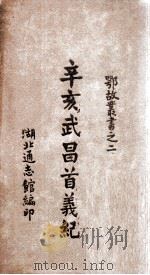 鄂故叢書之二
辛亥武昌首義紀
湖北通志館編印
www.duxiu.com